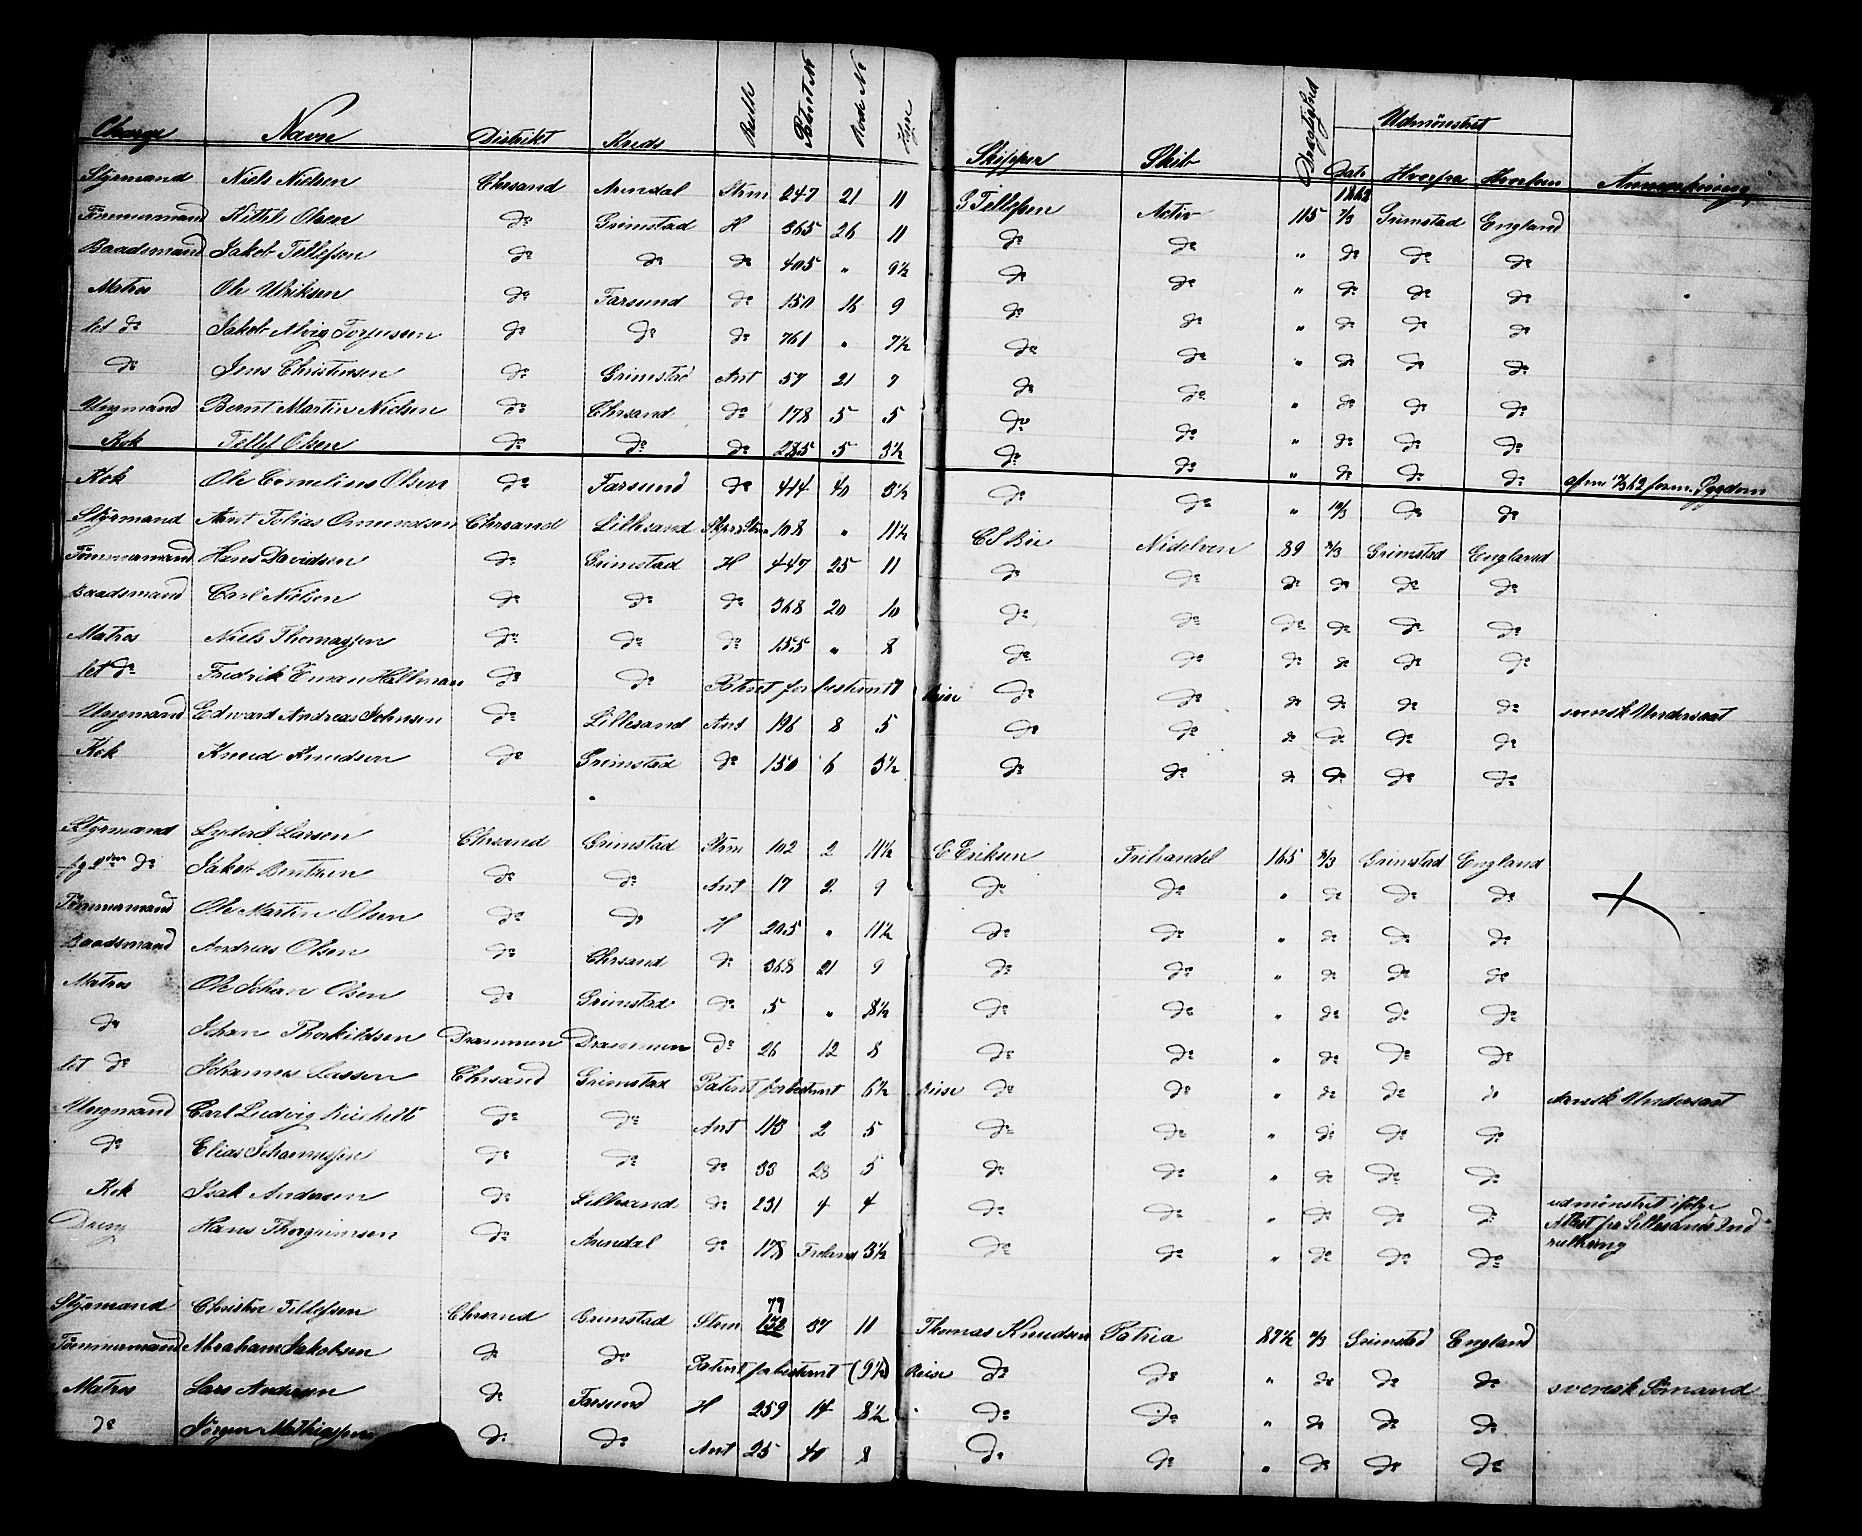 Charge Navn Distrikt Kreds Rulle Patent No Rode No Hyre Skipper Skib Drægtighed Udmönstret Dato Hvorfra Hvorhen Anmærkning
1862
Styrmand Niels Nielsen Chrsand Arendal Strm 247 21 11 P Tellefsen Activ 115 7/3 Grimstad England
Tömmermand Kittil Olsen do Grimstad H 365 26 11 do do " do do do
Baadsmand Jakob Tellefsen do do do 405 " 9½ do do " do do do
Matros Ole Ulriksen do Farsund do 150 16 9 do do " do do do
let do Jakob Alvig Torjussen do do do 761 " 7½ do do " do do do
do Jens Christensen do Grimstad Ant 57 21 7 do do " do do do
Ungmand Bernt Martin Nielsen do Chrsand do 178 5 5 do do " do do do
Kok Tellef Olsen do do do 285 5 3½ do do " do do do afm 12/3 62 form. Sygdom
Kok Ole Cornelius Olsen do Farsund do 414 40 3½ do do " 12/3 do do
Styrmand Arnt Tobias Omundsen Chrsand Lillesand 108 " 11½ C S Bie Nidelven 89 7/3 Grimstad England
Tömmermand Hans Davidsen do Grimstad H 447 25 11 do do do do do do
Baadsmand Carl Nielsen do do do 368 20 10 do do do do do do
Matros Niels Thomassen do do do 155 " 8 do do do do do do
let do Fredrik Eman Hellman do do Patent for bestemt Reise do do do do do do svensk Undersaat
Ungmand Edward Andreas Johnsen do Lillesand Ant 196 8 5 do do do do do do
Kok Knud Knudsen do Grimstad do 150 6 3½ do do do do do do
Styrmand Lyder J Larsen Chrsand Grimstad Strm 102 2 11½ E Eriksen Frihandel 165 8/3 Grimstad England
fg 2den do Jakob Bentzen do do Ant 17 2 9 do do " do do do
Tömmermand Ole Martin Olsen do do H 205 " 11½ do do " do do do
Baadsmand Andreas Olsen do Chrsand do 368 21 9 do do " do do do
Matros Ole Johan Olsen do Grimstad do 5 " 8½ do do " do do do
do Johan Thorkildsen Drammen Drammen do 26 12 8 do do " do do do
let do Johannes Lassen Chrsand Grimstad Patent for bestemt 6½ Reise do do " do do do dansk Undersaat
Ungmand Carl Ludvig do do Ant 113 2 5 do do " do do do
do Elias Johannessen do do do 33 23 5 do do " do do do
Kok Isak Andersen do Lillesand do 231 4 4 do do " do do do udmönstret ifölge
Attest fra Lillesands Ind
rullering
Dreng Hans Thorgrimsen do Arendal do 178 Froland 3½ do do " do do do
Styrmand Christen Tellefsen Chrsand Grimstad Strm 79 132 37 11 Thomas Knudsen Patria 87½ 8/3 Grimstad England
Tömmermand Abraham Jakobsen do do Patent for bestemt (9½) Reise do do " do do do svensk Sömand
Matros Lars Andersen do Farsund H 259 14 8½ do do " do do do
do Jörgen Mathiassen do do Ant 25 40 8 do do " do do do